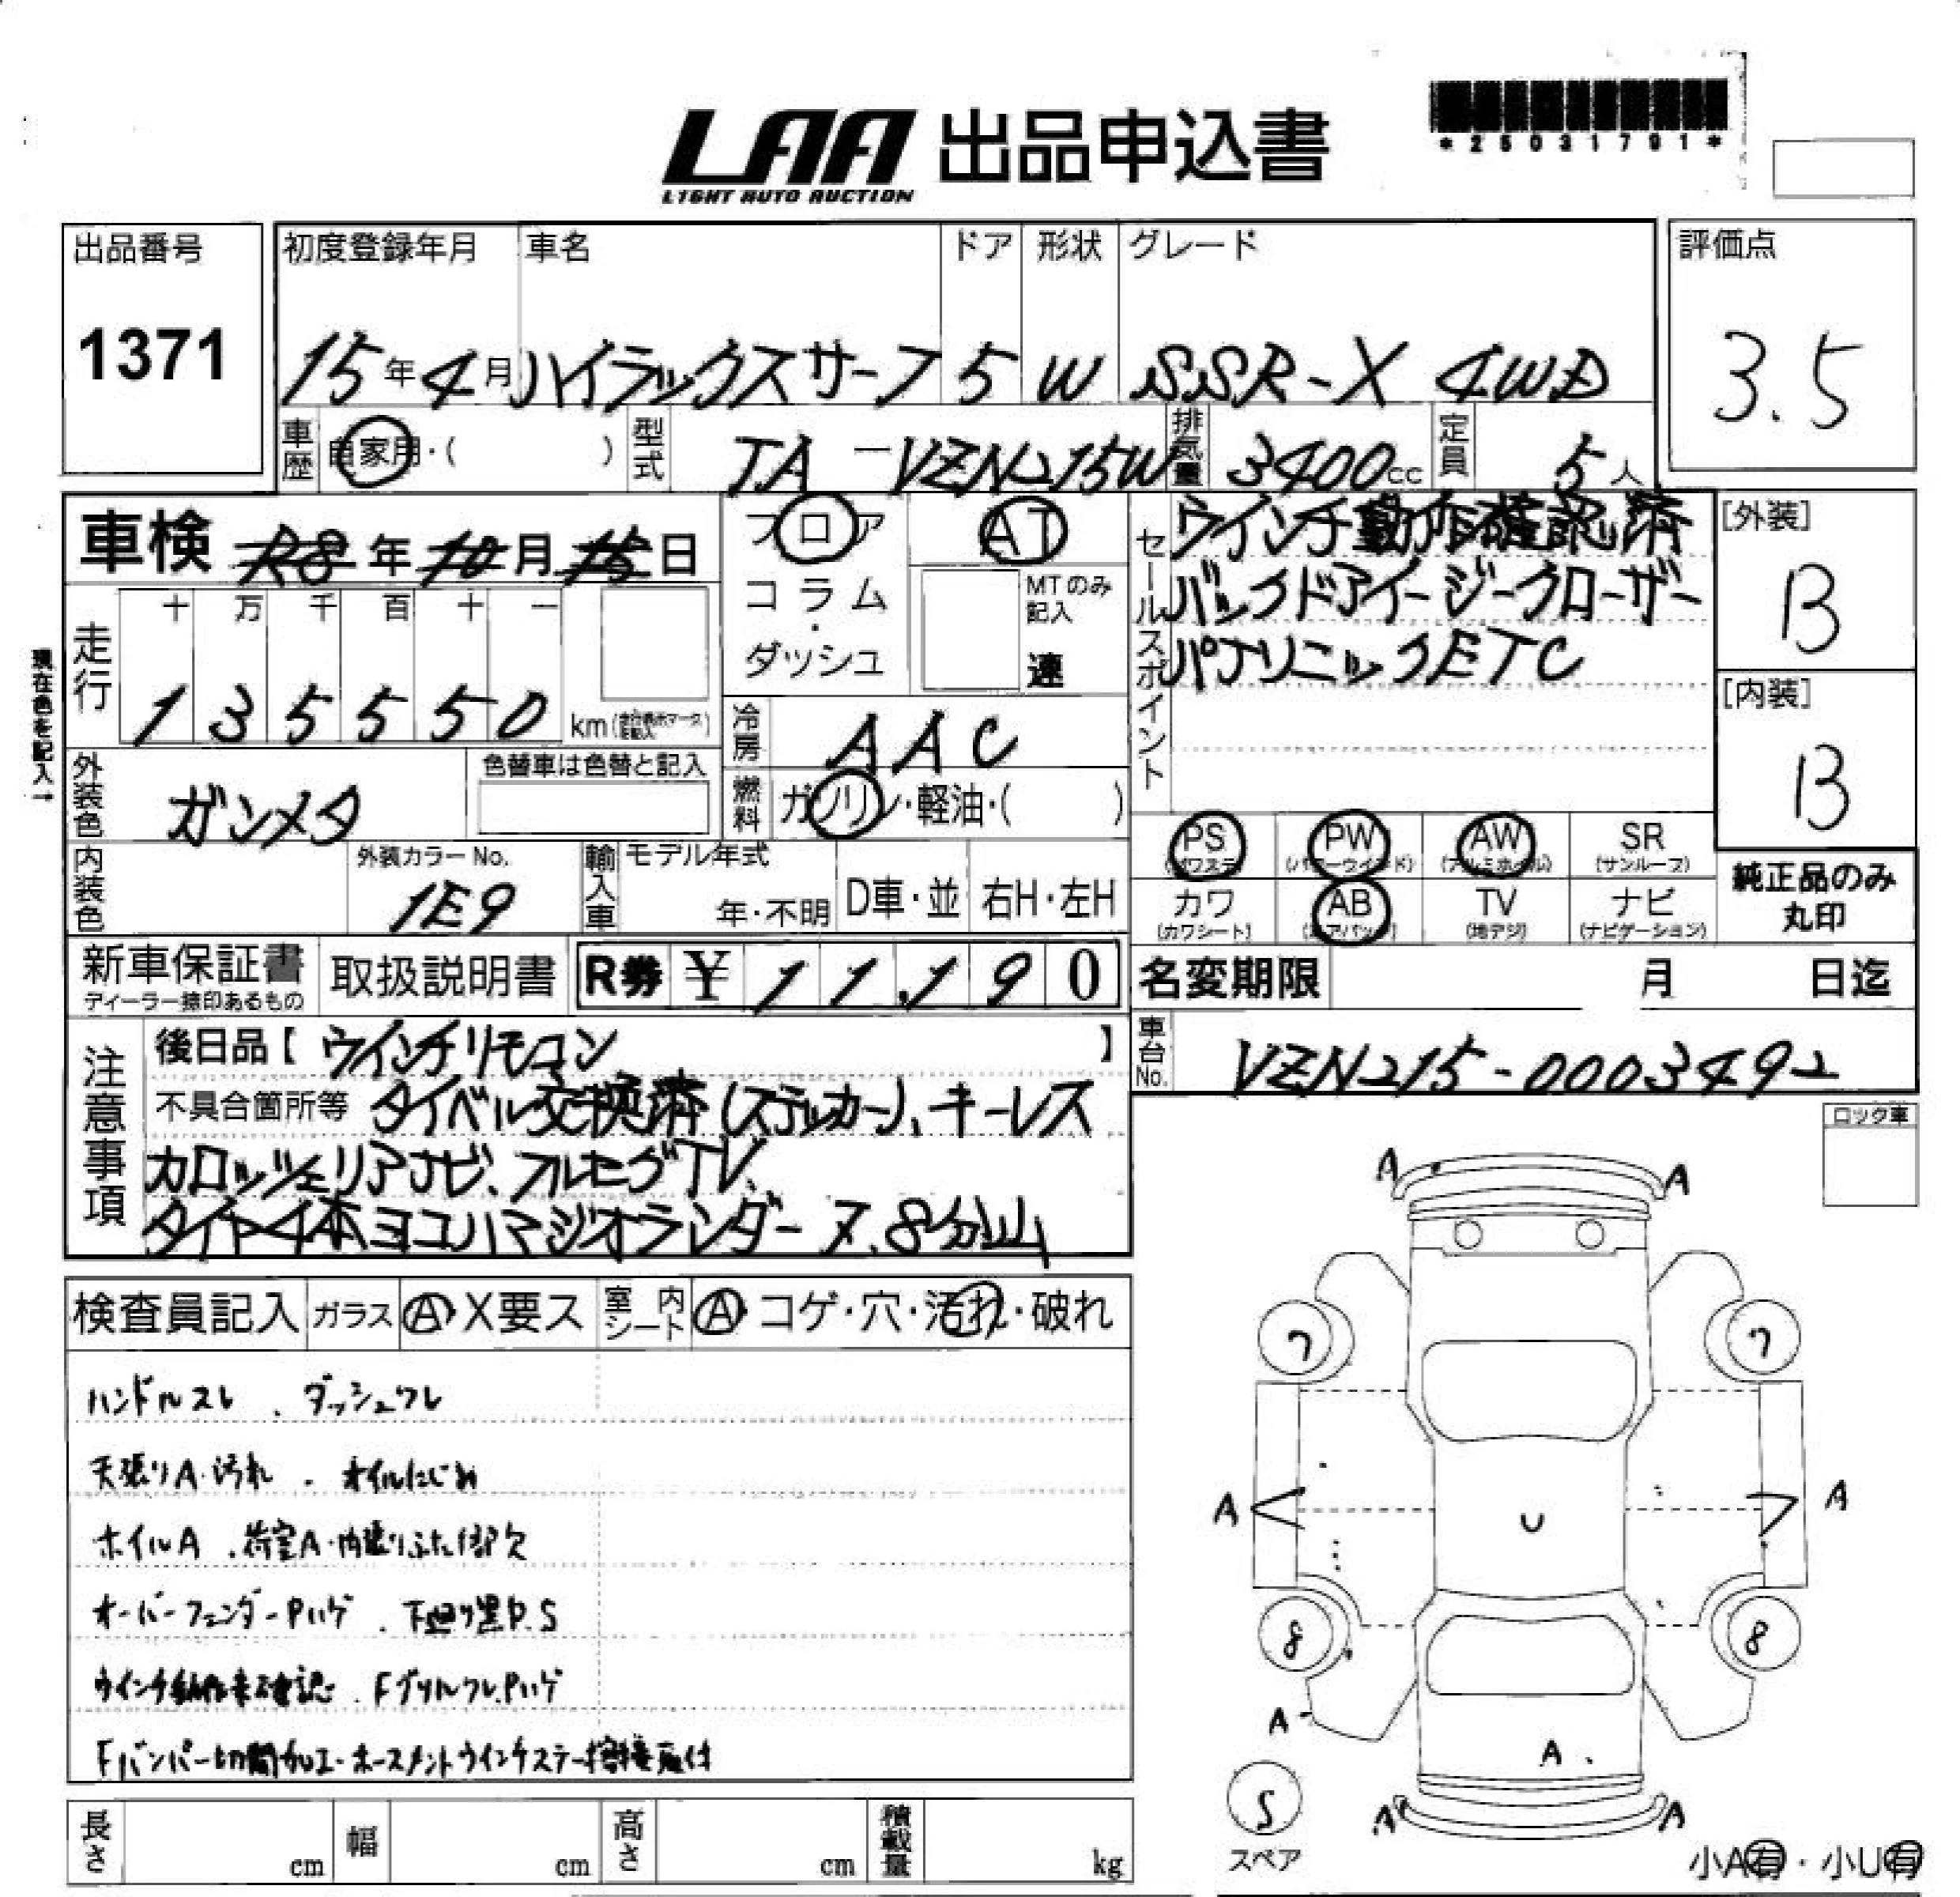 LAA 出品申込書
LIGHT AUTO AUCTION
*25031791*
出品番号
1371
初度登録年月
15年4月
車名
ハイラックスサーフ
ドア
5
形状
W
グレード
SSR-X 4WD
評価点
3.5
車歴
自家用・( )
型式
TA-VZN215W
排気量
3400cc
定員
5人
車検 R8年10月15日
走行
十 万 千 百 十 一
1 3 5 5 5 0 km
現在色を記入→
フロア
コラム
・
ダッシュ
AT
MTのみ
記入
速
冷房
AAC
燃料
ガソリン・軽油・( )
セールスポイント
ウインチ動作確認済
バックドアイージークローザー
パナソニックETC
[外装]
B
[内装]
B
外装色
ガンメタ
色替車は色替と記入
内装色
外装カラーNo.
1E9
輸入車
モデル年式
年・不明
D車・並
右H・左H
PS
(パワステ)
PW
(パワーウインド)
AW
(アルミホイル)
SR
(サンルーフ)
カワ
(カワシート)
AB
(エアバッグ)
TV
(地デジ)
ナビ
(ナビゲーション)
純正品のみ
丸印
新車保証書
ディーラー捺印あるもの
取扱説明書
R券 ¥ 11,190
名変期限 月 日迄
車台No.
VZN215-0003492
注意事項
後日品【 ウインチリモコン 】
不具合箇所等 タイベル交換済(ステッカー)、キーレス
カロッツェリアナビ、フルセグTV、
タイヤ4本ヨコハマジオランダー 7.8分山
ロック車
検査員記入 ガラス A・X要ス 室内シート A・コゲ・穴・汚れ・破れ
ハンドルスレ、ダッシュワレ
天張りA・汚れ、オイルにじみ
ホイルA、荷室A・内張りふた1部欠
オーバーフェンダーPハゲ、下廻り黒P.S
ウインチ動作未確認、FグリルワレPハゲ
Fバンパー切開加工・ホースメントウインチステー溶接取付
A A
7 7
A A
U
8 8
A
A
A A
S
スペア
小A有・小U有
長さ cm
幅 cm
高さ cm
積載量 kg